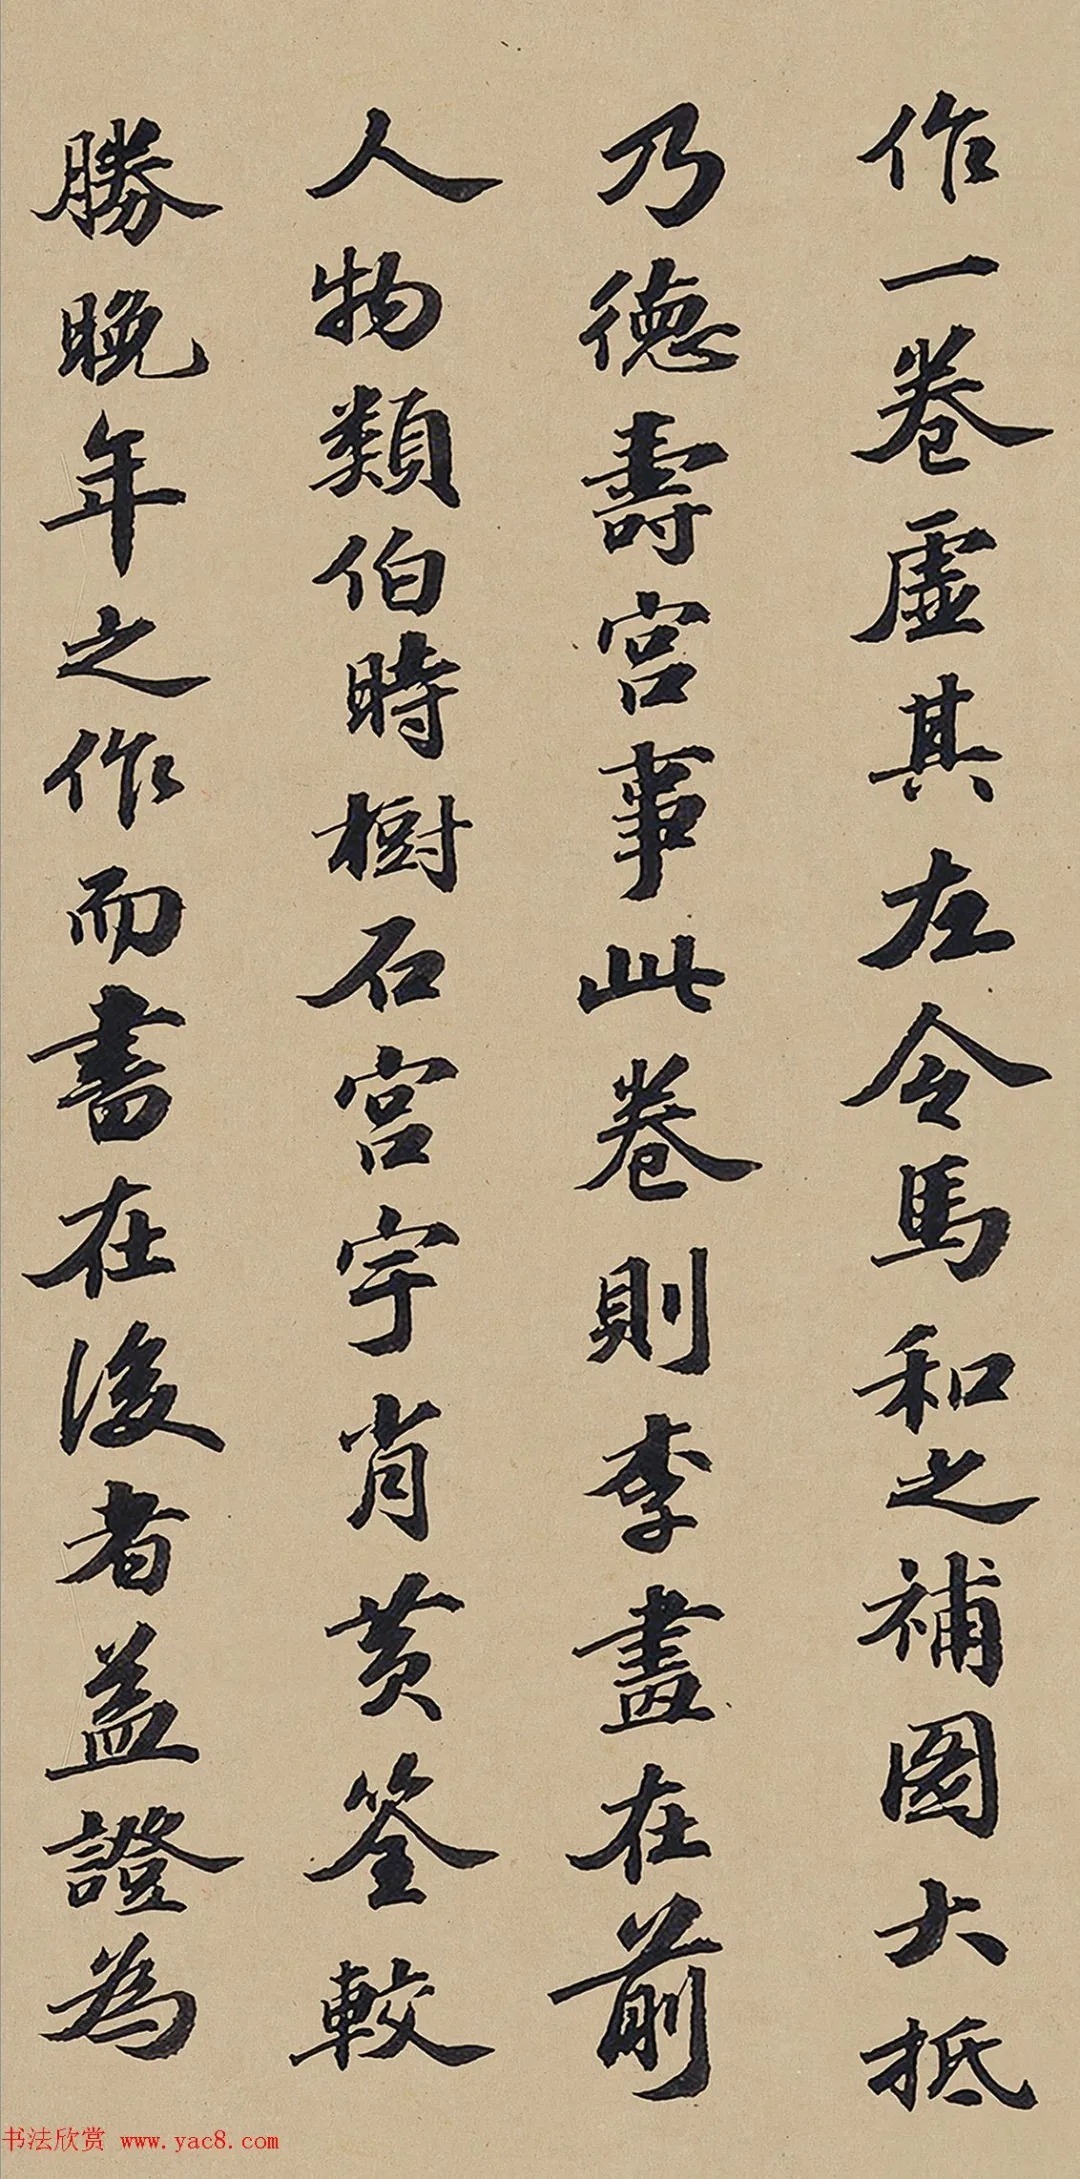 作一卷虛其左令馬和之補圖大抵
乃德壽宮事此卷則李畫在前
人物類伯時樹石宮宇肖黃筌較
勝晚年之作而書在後者益證為
书法欣赏 www.yac8.com